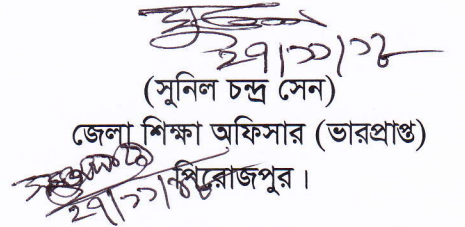 ২৭/১১/১৮
(সুনিল চন্দ্র সেন)
জেলা শিক্ষা অফিসার (ভারপ্রাপ্ত)
পিরোজপুর।